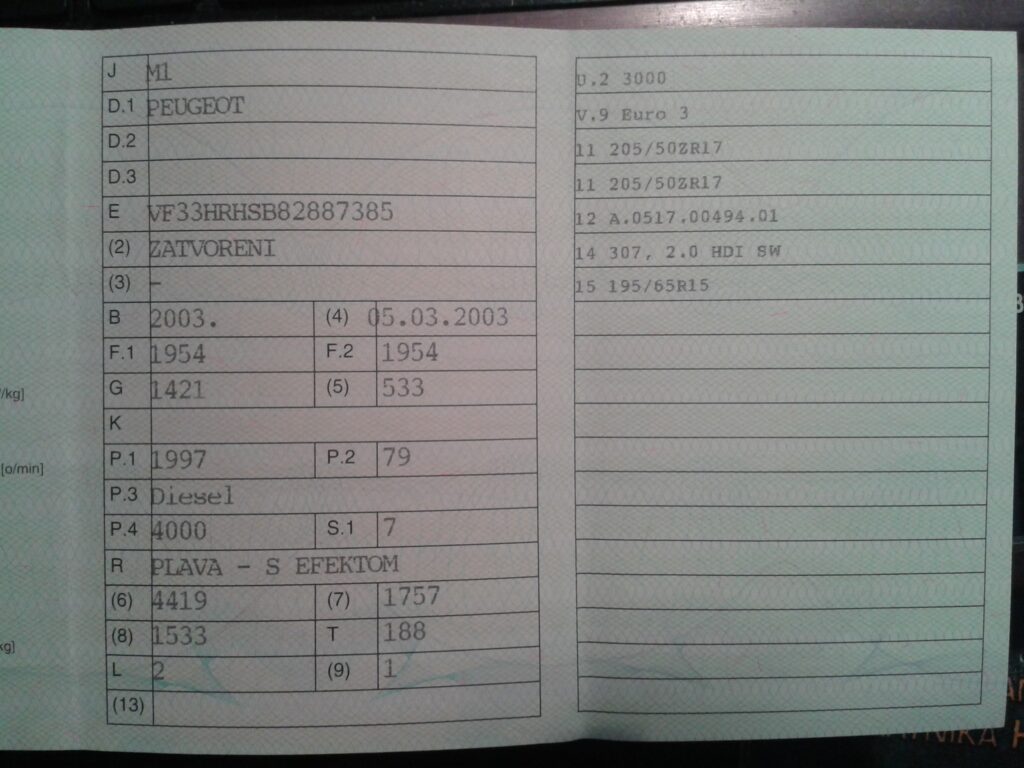 J M1
D.1 PEUGEOT
D.2
D.3
E VF33HRHSB82887385
(2) ZATVORENI
(3) -
B 2003. (4) 05.03.2003
F.1 1954 F.2 1954
G 1421 (5) 533
K
P.1 1997 P.2 79
P.3 Diesel
P.4 4000 S.1 7
R PLAVA - S EFEKTOM
(6) 4419 (7) 1757
(8) 1533 T 188
L 2 (9) 1
(13)
U.2 3000
V.9 Euro 3
11 205/50ZR17
11 205/50ZR17
12 A.0517.00494.01
14 307, 2.0 HDI SW
15 195/65R15
/kg]
[o/min]
kg]